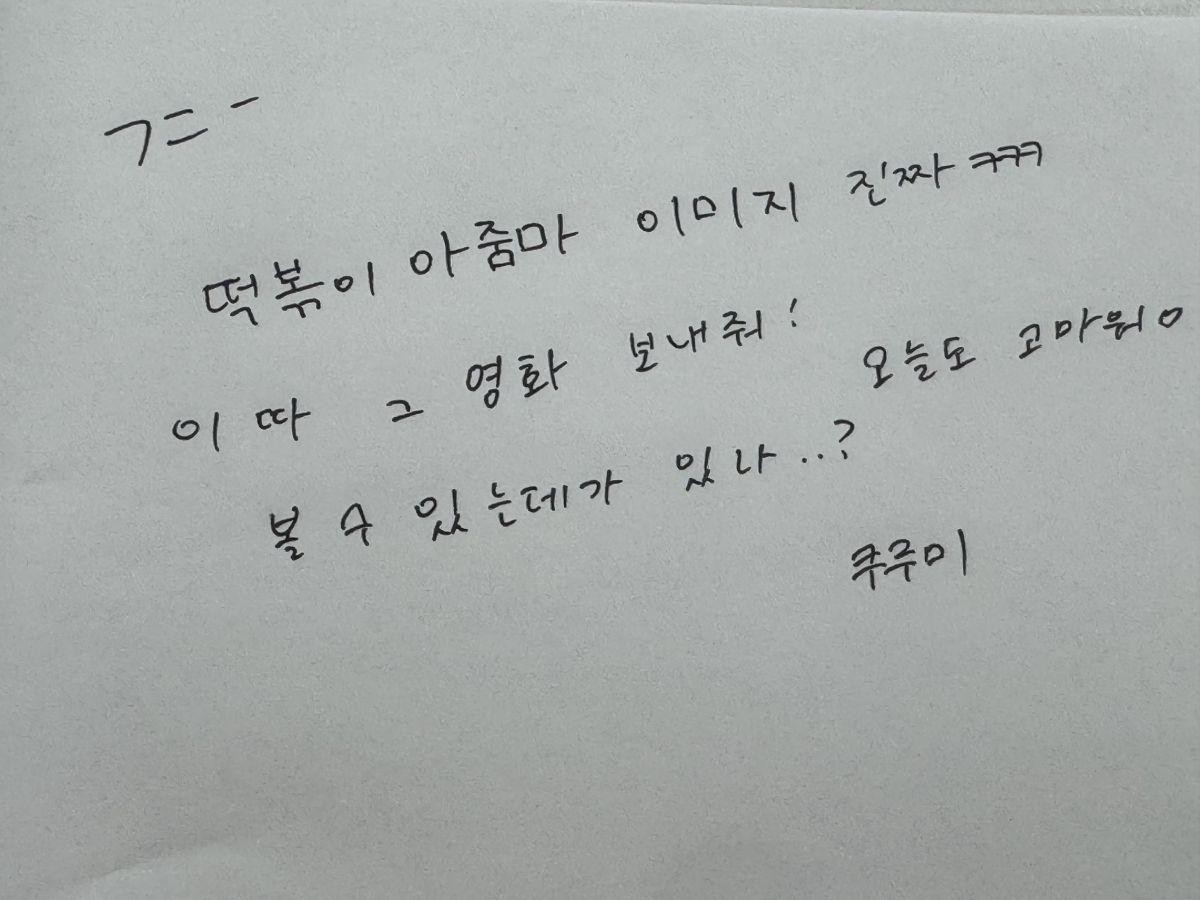 ㄱㄷ-
떡볶이 아줌마 이미지 진짜 ㅋㅋㅋ
이따 그 영화 보내줘!
오늘도 고마워ㅇ
볼 수 있는데가 있나..?
쿠루미